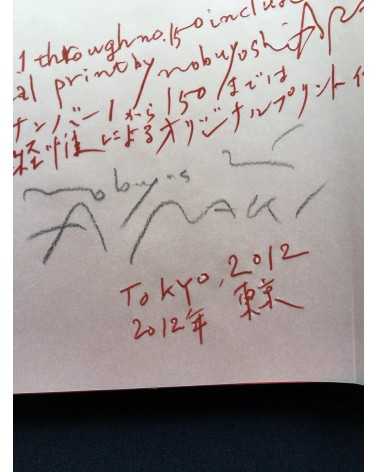 1 through no.150 inclu
al print by nobuyoshi ARA
ナンバー1から150までは
経惟によるオリジナルプリント
nobuyoshi
ARAKI
TOKYO, 2012
2012年 東京